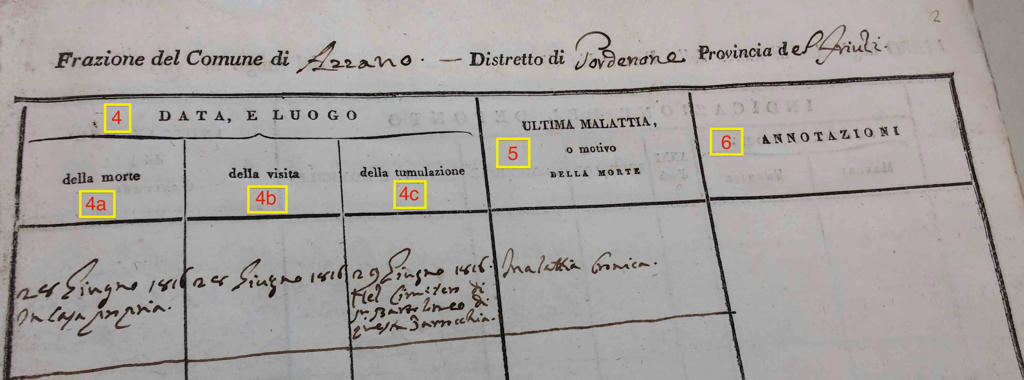 2
Frazione del Comune di Azzano. — Distretto di Pordenone Provincia del Friuli.
4 DATA, E LUOGO
5 ULTIMA MALATTIA,
o motivo
DELLA MORTE
6 ANNOTAZIONI
della morte
4a
della visita
4b
della tumulazione
4c
28 Giugno 1816
In Casa propria.
28 Giugno 1816
29 Giugno 1816.
Nel Cimitero di
S. Bartolomeo di
questa Parrocchia.
Malattia Cronica.